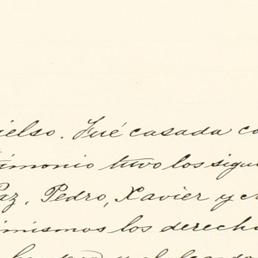 ielso. Fué casada co
imonio tuvo los sigu
Paz, Pedro, Xavier y
imismos los derecho